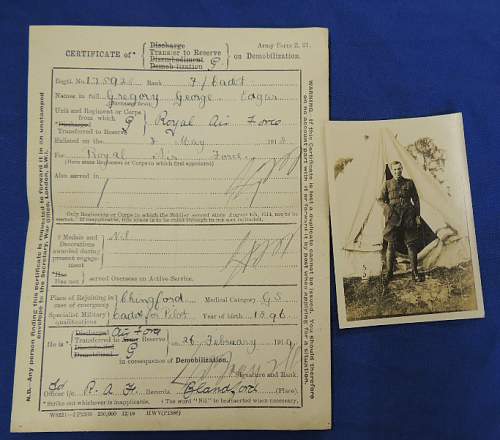 CERTIFICATE of* { Discharge
Transfer to Reserve
Disembodiment
Demobilization } on Demobilization.
Army Form Z. 21.
Regtl. No. 175925 Rank F/Cadet
Names in full Gregory George Edgar
(Surname first)
Unit and Regiment or Corps
from which
*Discharged
Transferred to Reserve } Royal Air Force
Enlisted on the 2 May 191
For Royal Air Force
(Here state Regiment or Corps to which first appointed)
Also served in
Only Regiments or Corps in which the Soldier served since August 4th, 1914, are to be stated. If inapplicable, this space is to be ruled through in ink and initialled.
† Medals and
Decorations
awarded during
present engage-
ment } Nil
*Has
Has not } served Overseas on Active Service.
Place of Rejoining in
case of emergency } Chingford Medical Category G.S.
Specialist Military
qualifications } Cadet for Pilot Year of birth 1896
He is { Discharged
Transferred to Reserve
Disembodied
Demobilized } on 26 February 1919
Air Force
in consequence of Demobilization.
Signature and Rank.
Officer i/c R.A.F. Records. Blandford (Place).
* Strike out whichever is inapplicable. † The word "Nil" to be inserted when necessary.
N.B.—Any person finding this certificate is requested to forward it in an unstamped envelope to the Secretary, War Office, London, S.W.1.
WARNING.—If this Certificate is lost a duplicate cannot be issued. You should therefore on no account part with it or forward it by post when applying for a situation.